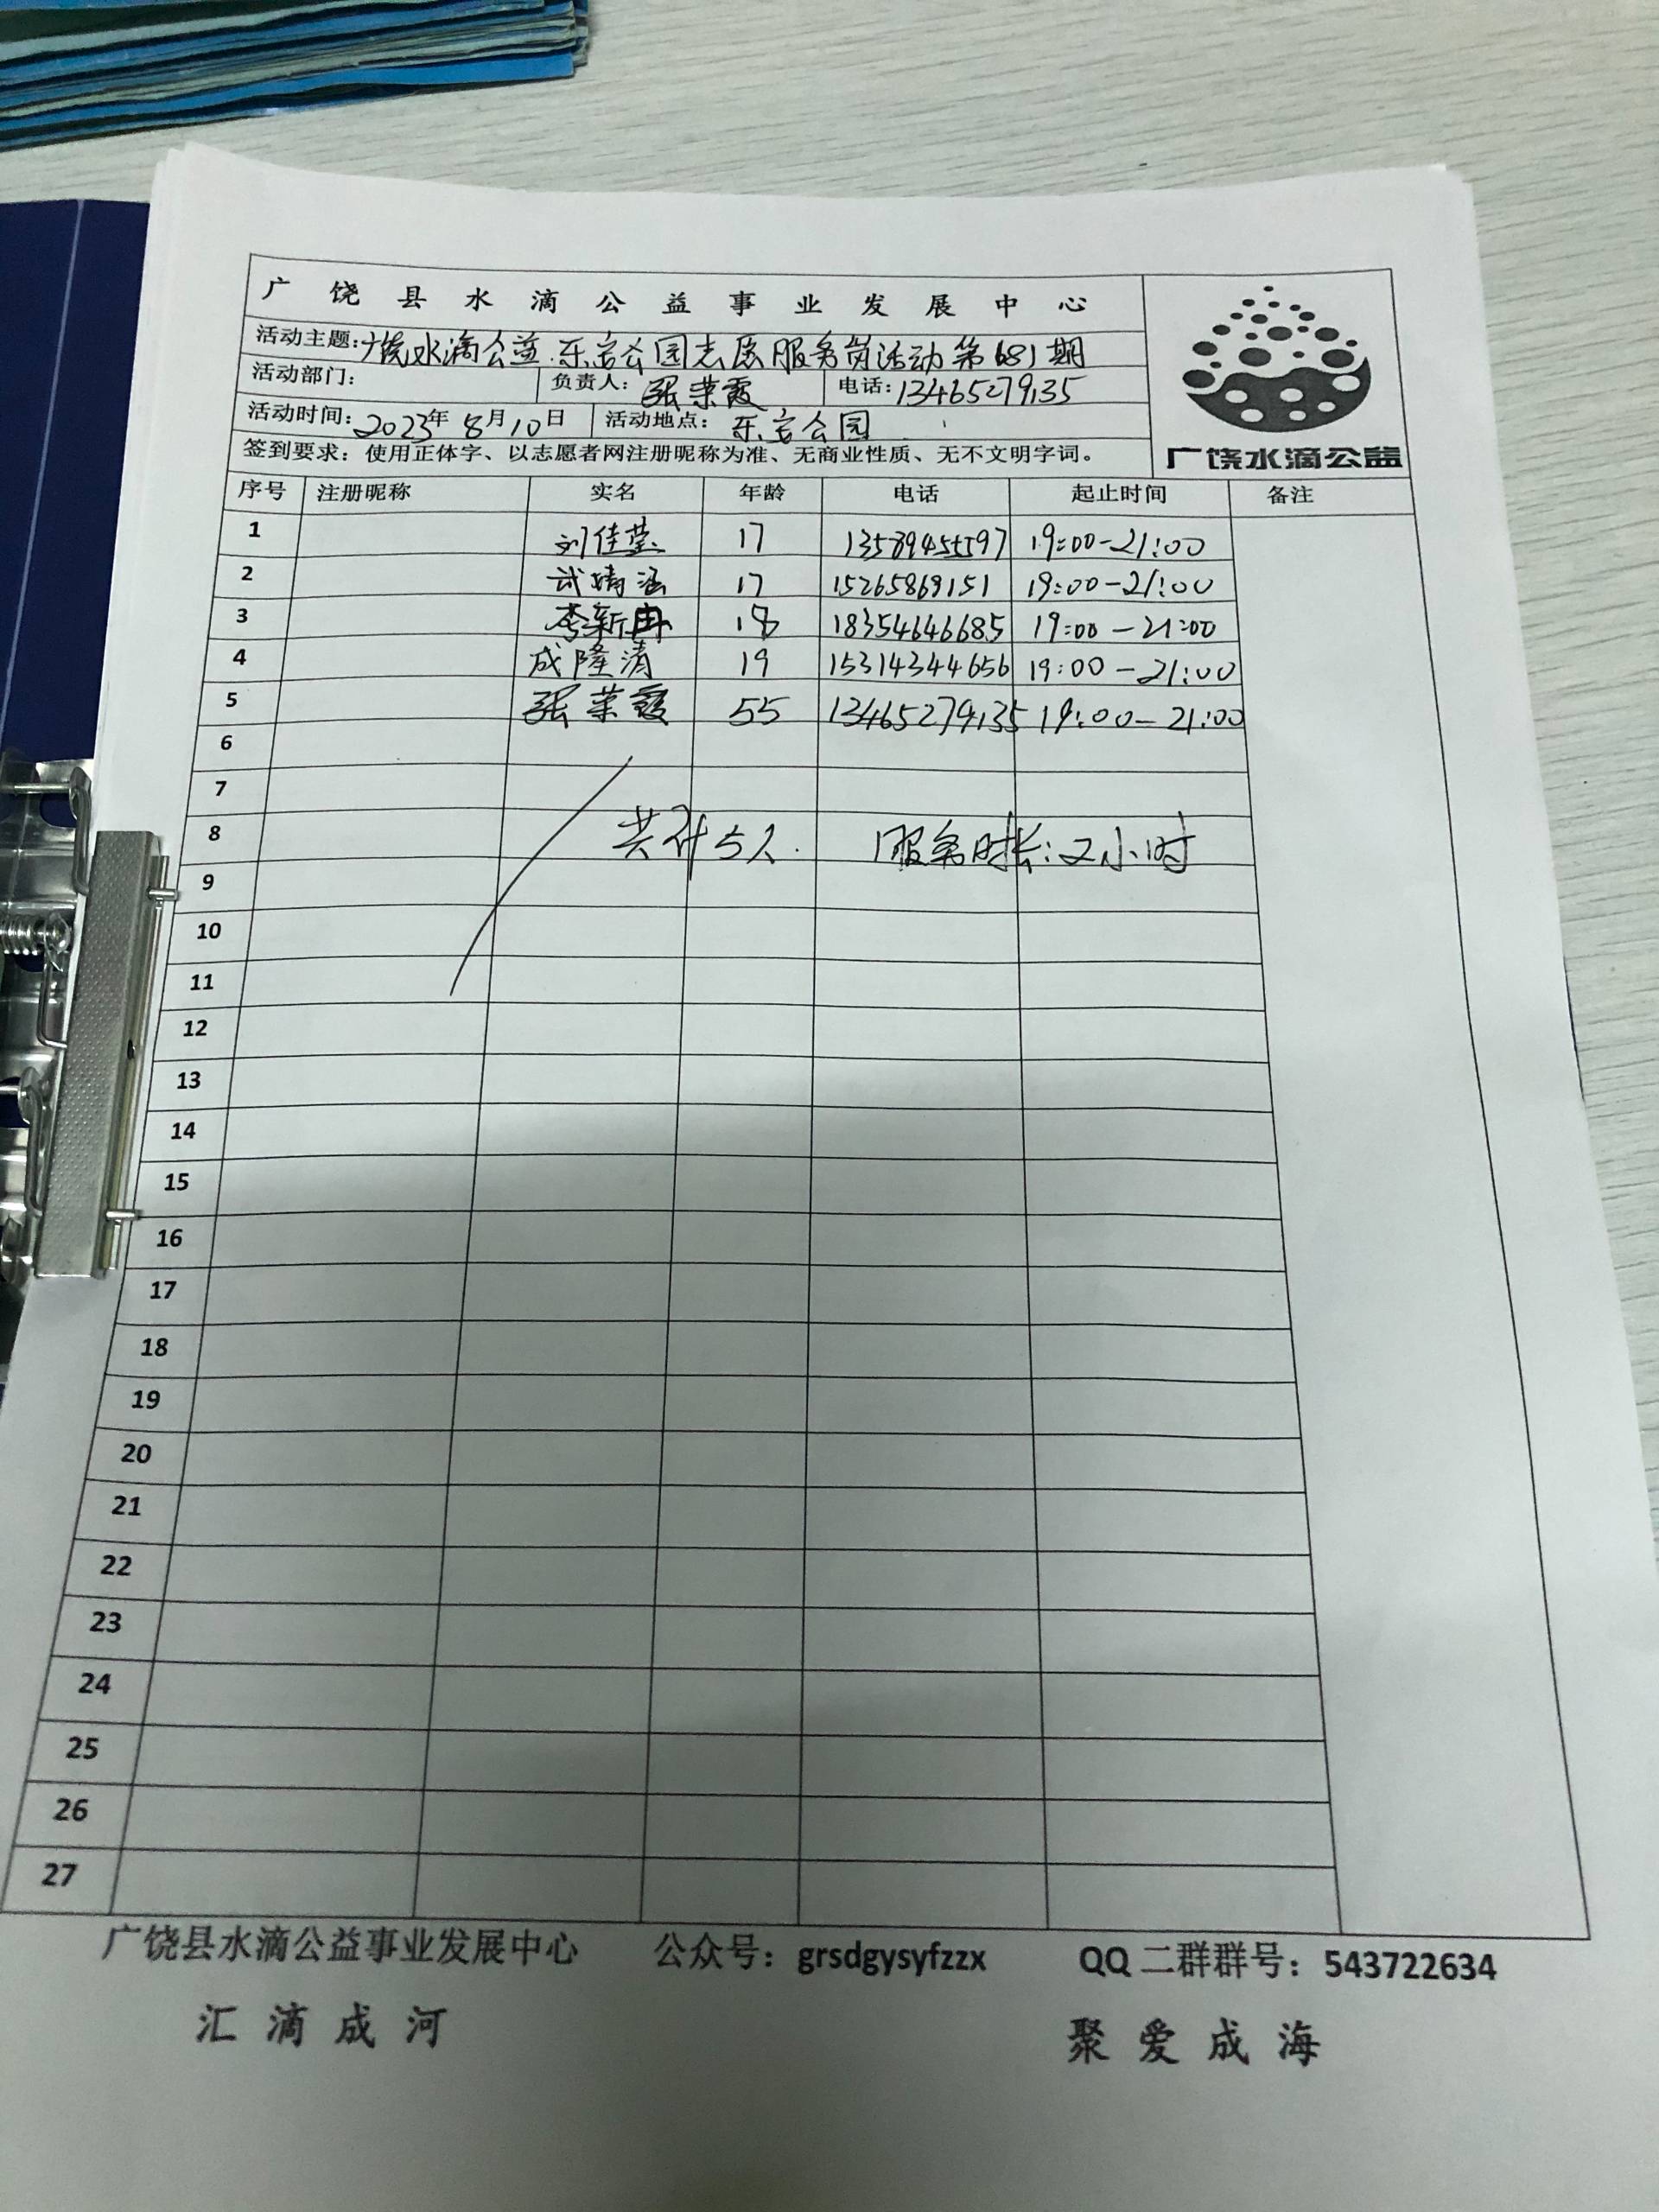 广饶县水滴公益事业发展中心
活动主题:广饶水滴公益.乐安公园志愿服务岗活动第681期
活动部门: 负责人:张荣霞 电话:13465279135
活动时间:2023年8月10日 活动地点:乐安公园
签到要求:使用正体字、以志愿者网注册昵称为准、无商业性质、无不文明字词。
广饶水滴公益
序号 注册昵称 实名 年龄 电话 起止时间 备注
1 刘佳莹 17 13589455597 19:00-21:00
2 婧涵 17 15265869151 19:00-21:00
3 李新冉 18 18354646685 19:00-21:00
4 成隆清 19 15314344656 19:00-21:00
5 张荣霞 55 13465279135 19:00-21:00
6
7
8 共计5人. 服务时长:2小时
9
10
11
12
13
14
15
16
17
18
19
20
21
22
23
24
25
26
27
广饶县水滴公益事业发展中心 公众号:grsdgysyfzzx QQ二群群号:543722634
汇滴成河 聚爱成海